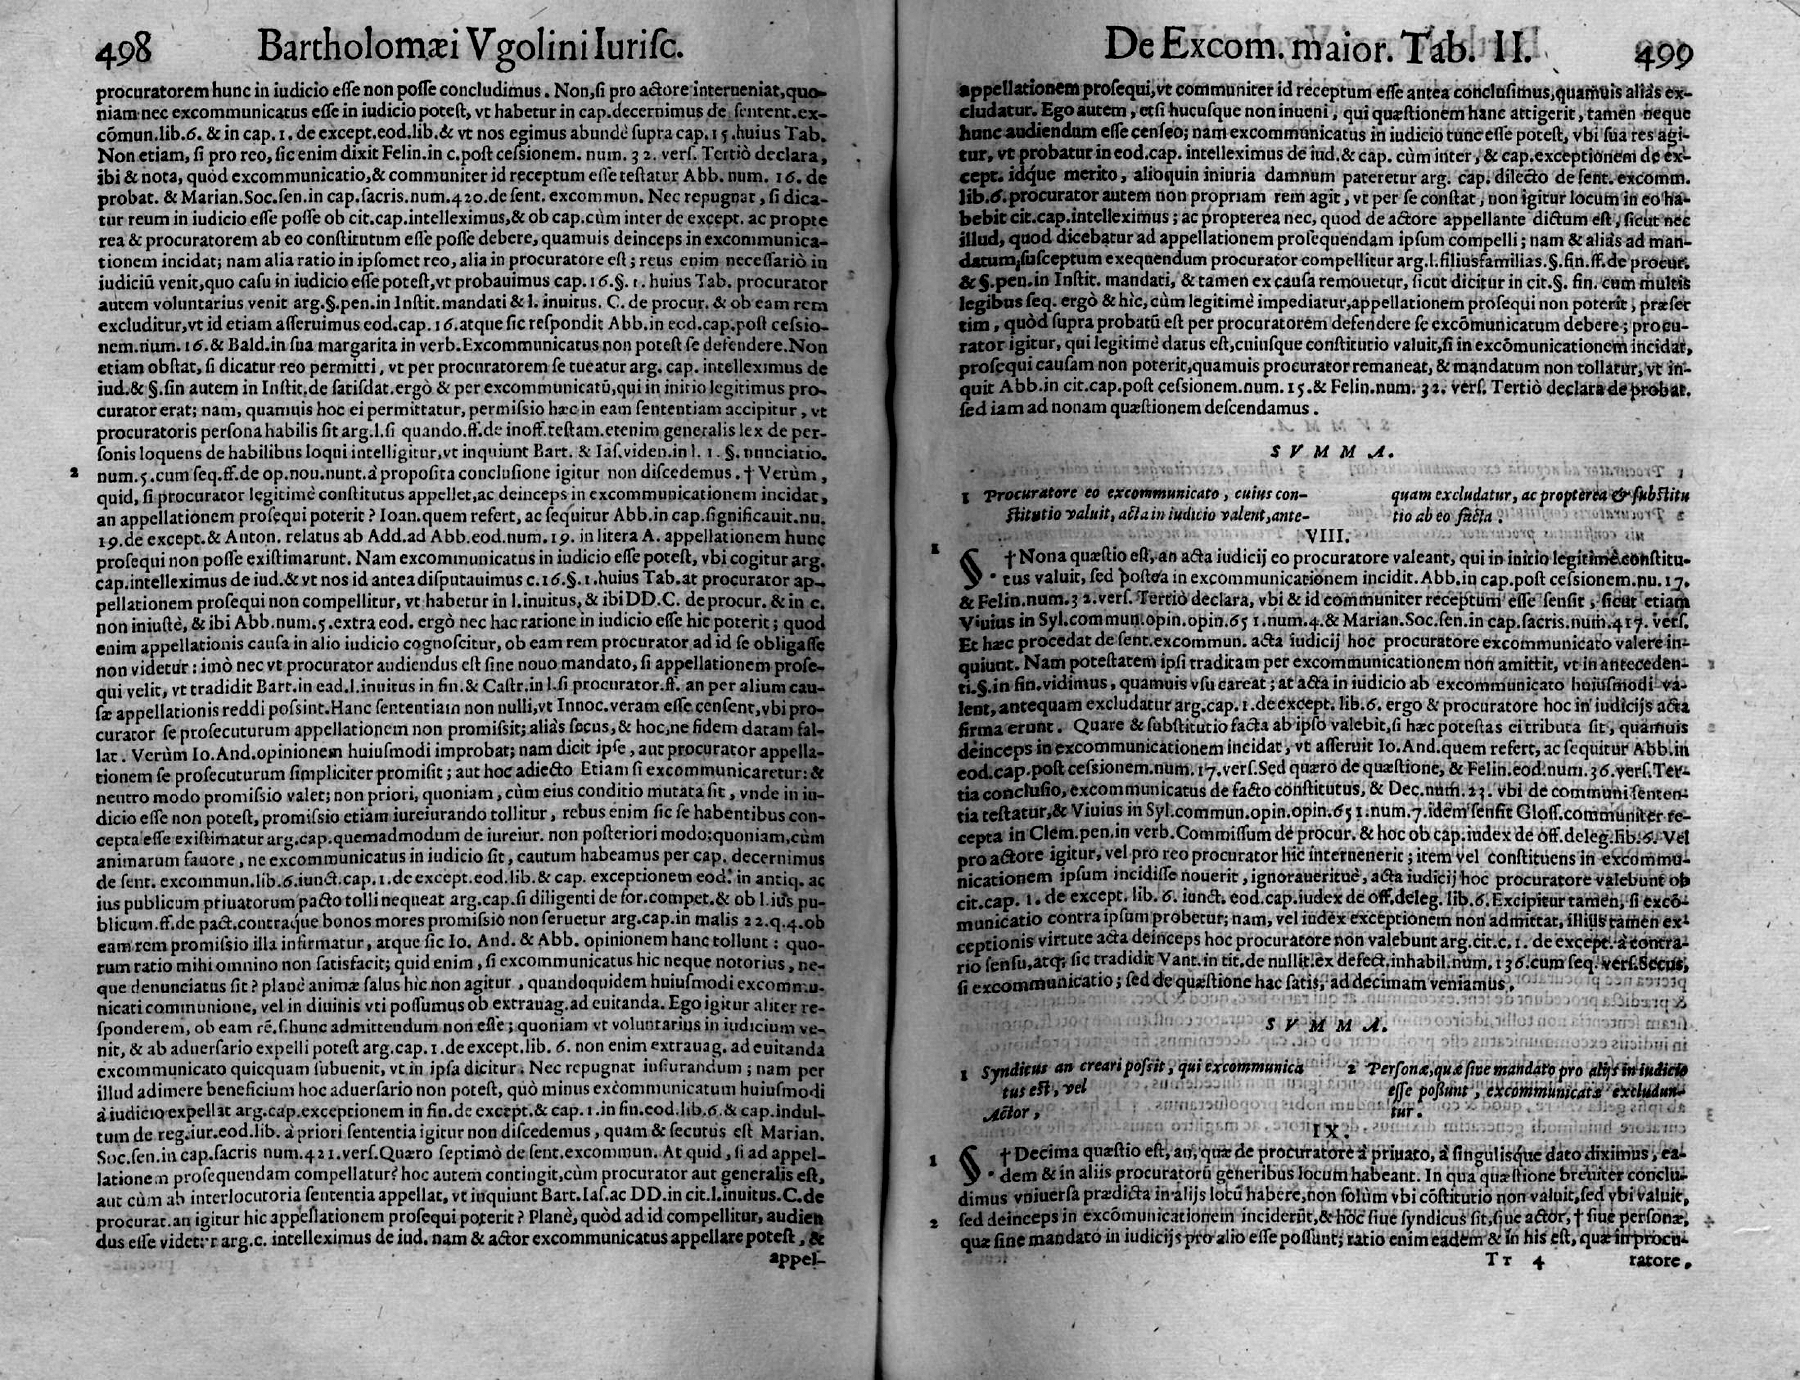 498 Bartholomæi Vgolini Iurisc.
procuratorem hunc in iudicio esse non posse concludimus. Non, si pro actore interueniat, quo-
niam nec excommunicatus esse in iudicio potest, vt habetur in cap. decernimus de sentent. ex-
cõmun. lib. 6. & in cap. 1. de except. eod. lib. & vt nos egimus abundè supra cap. 15. huius Tab.
Non etiam, si pro reo, sic enim dixit Felin. in c. post cessionem. num. 32. vers. Tertiò declara,
ibi & nota, quòd excommunicatio, & communiter id receptum esse testatur Abb. num. 16. de
probat. & Marian. Soc. sen. in cap. sacris. num. 420. de sent. excommun. Nec repugnat, si dica-
tur reum in iudicio esse posse ob cit. cap. intelleximus, & ob cap. cùm inter de except. ac propte
rea & procuratorem ab eo constitutum esse posse debere, quamuis deinceps in excommunica-
tionem incidat; nam alia ratio in ipsomet reo, alia in procuratore est; reus enim necessariò in
iudiciũ venit, quo casu in iudicio esse potest, vt probauimus cap. 16. §. 1. huius Tab. procurator
autem voluntarius venit arg. §. pen. in Instit. mandati & l. inuitus. C. de procur. & ob eam rem
excluditur, vt id etiam asseruimus eod. cap. 16. atque sic respondit Abb. in eod. cap. post cessio-
nem. num. 16. & Bald. in sua margarita in verb. Excommunicatus non potest se defendere. Non
etiam obstat, si dicatur reo permitti, vt per procuratorem se tueatur arg. cap. intelleximus de
iud. & §. sin autem in Instit. de satisdat. ergò & per excommunicatũ, qui in initio legitimus pro-
curator erat; nam, quamuis hoc ei permittatur, permissio hæc in eam sententiam accipitur, vt
procuratoris persona habilis sit arg. l. si quando. ff. de inoff. testam. etenim generalis lex de per-
sonis loquens de habilibus loqui intelligitur, vt inquiunt Bart. & Ias. viden. in l. 1. §. nunciatio.
2 num. 5. cum seq. ff. de op. nou. nunt. à proposita conclusione igitur non discedemus. † Verùm,
quid, si procurator legitimè constitutus appellet, ac deinceps in excommunicationem incidat,
an appellationem prosequi poterit? Ioan. quem refert, ac sequitur Abb. in cap. significauit. nu.
19. de except. & Anton. relatus ab Add. ad Abb. eod. num. 19. in litera A. appellationem hunc
prosequi non posse existimarunt. Nam excommunicatus in iudicio esse potest, vbi cogitur arg.
cap. intelleximus de iud. & vt nos id antea disputauimus c. 16. §. 1. huius Tab. at procurator ap-
pellationem prosequi non compellitur, vt habetur in l. inuitus, & ibi DD. C. de procur. & in c.
non iniustè, & ibi Abb. num. 5. extra eod. ergò nec hac ratione in iudicio esse hic poterit; quod
enim appellationis causa in alio iudicio cognoscitur, ob eam rem procurator ad id se obligasse
non videtur: imò nec vt procurator audiendus est sine nouo mandato, si appellationem prose-
qui velit, vt tradidit Bart. in ead. l. inuitus in fin. & Castr. in l. si procurator. ff. an per alium cau-
sæ appellationis reddi possint. Hanc sententiam non nulli, vt Innoc. veram esse censent, vbi pro-
curator se prosecuturum appellationem non promissit; aliàs secus, & hoc, ne fidem datam fal-
lat. Verùm Io. And. opinionem huiusmodi improbat; nam dicit ipse, aut procurator appella-
tionem se prosecuturum simpliciter promisit; aut hoc adiecto Etiam si excommunicaretur: &
neutro modo promissio valet; non priori, quoniam, cùm eius conditio mutata sit, vnde in iu-
dicio esse non potest, promissio etiam iureiurando tollitur, rebus enim sic se habentibus con-
cepta esse existimatur arg. cap. quemadmodum de iureiur. non posteriori modo; quoniam, cùm
animarum fauore, ne excommunicatus in iudicio sit, cautum habeamus per cap. decernimus
de sent. excommun. lib. 6. iunct. cap. 1. de except. eod. lib. & cap. exceptionem eod. in antiq. ac
ius publicum priuatorum pacto tolli nequeat arg. cap. si diligenti de for. compet. & ob l. ius pu-
blicum. ff. de pact. contraque bonos mores promissio non seruetur arg. cap. in malis 22. q. 4. ob
eam rem promissio illa infirmatur, atque sic Io. And. & Abb. opinionem hanc tollunt: quo-
rum ratio mihi omnino non satisfacit; quid enim, si excommunicatus hic neque notorius, ne-
que denunciatus sit? planè animæ salus hic non agitur, quandoquidem huiusmodi excommu-
nicati communione, vel in diuinis vti possumus ob extrauag. ad euitanda. Ego igitur aliter re-
sponderem, ob eam rẽ. s. hunc admittendum non esse; quoniam vt voluntarius in iudicium ve-
nit, & ab aduersario expelli potest arg. cap. 1. de except. lib. 6. non enim extrauag. ad euitanda
excommunicato quicquam subuenit, vt in ipsa dicitur. Nec repugnat iusiurandum; nam per
illud adimere beneficium hoc aduersario non potest, quò minus excommunicatum huiusmodi
à iudicio expellat arg. cap. exceptionem in fin. de except. & cap. 1. in fin. eod. lib. 6. & cap. indul-
tum de reg. iur. eod. lib. à priori sententia igitur non discedemus, quam & secutus est Marian.
Soc. sen. in cap. sacris num. 421. vers. Quæro septimò de sent. excommun. At quid, si ad appel-
lationem prosequendam compellatur? hoc autem contingit, cùm procurator aut generalis est,
aut cùm ab interlocutoria sententia appellat, vt inquiunt Bart. Ias. ac DD. in cit. l. inuitus. C. de
procurat. an igitur hic appellationem prosequi poterit? Planè, quòd ad id compellitur, audien
dus esse videtur arg. c. intelleximus de iud. nam & actor excommunicatus appellare potest, &
appel-
De Excom. maior. Tab. II. 499
appellationem prosequi, vt communiter id receptum esse antea conclusimus, quamuis aliàs ex-
cludatur. Ego autem, etsi hucusque non inueni, qui quæstionem hanc attigerit, tamen neque
hunc audiendum esse censeo; nam excommunicatus in iudicio tunc esse potest, vbi sua res agi-
tur, vt probatur in eod. cap. intelleximus de iud. & cap. cùm inter, & cap. exceptionem de ex-
cept. idque merito, alioquin iniuria damnum pateretur arg. cap. dilecto de sent. excomm.
lib. 6. procurator autem non propriam rem agit, vt per se constat, non igitur locum in eo ha-
bebit cit. cap. intelleximus; ac propterea nec, quod de actore appellante dictum est, sicut nec
illud, quod dicebatur ad appellationem prosequendam ipsum compelli; nam & aliàs ad man-
datum susceptum exequendum procurator compellitur arg. l. filiusfamilias. §. fin. ff. de procur.
& §. pen. in Instit. mandati, & tamen ex causa remouetur, sicut dicitur in cit. §. fin. cum multis
legibus seq. ergò & hic, cùm legitimè impediatur, appellationem prosequi non poterit, præser
tim, quòd supra probatũ est per procuratorem defendere se excõmunicatum debere; procu-
rator igitur, qui legitimè datus est, cuiusque constitutio valuit, si in excõmunicationem incidat,
prosequi causam non poterit, quamuis procurator remaneat, & mandatum non tollatur, vt in-
quit Abb. in cit. cap. post cessionem. num. 15. & Felin. num. 32. vers. Tertiò declara de probat.
sed iam ad nonam quæstionem descendamus.
SVMMA.
1 Procuratore eo excommunicato, cuius con-
stitutio valuit, acta in iudicio valent, ante-
quam excludatur, ac propterea & substitu
tio ab eo facta.
VIII.
1 §. † Nona quæstio est, an acta iudicij eo procuratore valeant, qui in initio legitimè constitu-
tus valuit, sed postea in excommunicationem incidit. Abb. in cap. post cessionem. nu. 17.
& Felin. num. 32. vers. Tertiò declara, vbi & id communiter receptum esse sensit, sicut etiam
Viuius in Syl. commun. opin. opin. 651. num. 4. & Marian. Soc. sen. in cap. sacris. num. 417. vers.
Et hæc procedat de sent. excommun. acta iudicij hoc procuratore excommunicato valere in-
quiunt. Nam potestatem ipsi traditam per excommunicationem non amittit, vt in anteceden-
ti. §. in fin. vidimus, quamuis vsu careat; at acta in iudicio ab excommunicato huiusmodi va-
lent, antequam excludatur arg. cap. 1. de except. lib. 6. ergo & procuratore hoc in iudicijs acta
firma erunt. Quare & substitutio facta ab ipso valebit, si hæc potestas ei tributa sit, quamuis
deinceps in excommunicationem incidat, vt asseruit Io. And. quem refert, ac sequitur Abb. in
eod. cap. post cessionem. num. 17. vers. Sed quæro de quæstione, & Felin. eod. num. 36. vers. Ter-
tia conclusio, excommunicatus de facto constitutus, & Dec. num. 23. vbi de communi senten-
tia testatur, & Viuius in Syl. commun. opin. opin. 651. num. 7. idem sensit Gloss. communiter re-
cepta in Clem. pen. in verb. Commissum de procur. & hoc ob cap. iudex de off. deleg. lib. 6. Vel
pro actore igitur, vel pro reo procurator hic interuenerit; item vel constituens in excommu-
nicationem ipsum incidisse nouerit, ignorauerituè, acta iudicij hoc procuratore valebunt ob
cit. cap. 1. de except. lib. 6. iunct. eod. cap. iudex de off. deleg. lib. 6. Excipitur tamen, si excõ-
municatio contra ipsum probetur; nam, vel iudex exceptionem non admittat, illius tamen ex-
ceptionis virtute acta deinceps hoc procuratore non valebunt arg. cit. c. 1. de except. à contra-
rio sensu, atq; sic tradidit Vant. in tit. de nullit. ex defect. inhabil. num. 136. cum seq. vers. Secus,
si excommunicatio; sed de quæstione hac satis, ad decimam veniamus.
SVMMA.
1 Syndicus an creari possit, qui excommunica
tus est, vel
Actor,
2 Personæ, quæ sine mandato pro alijs in iudicio
esse possunt, excommunicatæ excludun-
tur.
IX.
1 §. † Decima quæstio est, an, quæ de procuratore à priuato, à singulisque dato diximus, ea-
dem & in aliis procuratorũ generibus locum habeant. In qua quæstione breuiter conclu-
dimus vniuersa prædicta in alijs locũ habere, non solùm vbi cõstitutio non valuit, sed vbi valuit,
2 sed deinceps in excõmunicationem inciderũt, & hoc siue syndicus sit, siue actor, † siue personæ,
quæ sine mandato in iudicijs pro alio esse possunt; ratio enim eadem & in his est, quæ in procu-
Tt 4 ratore.